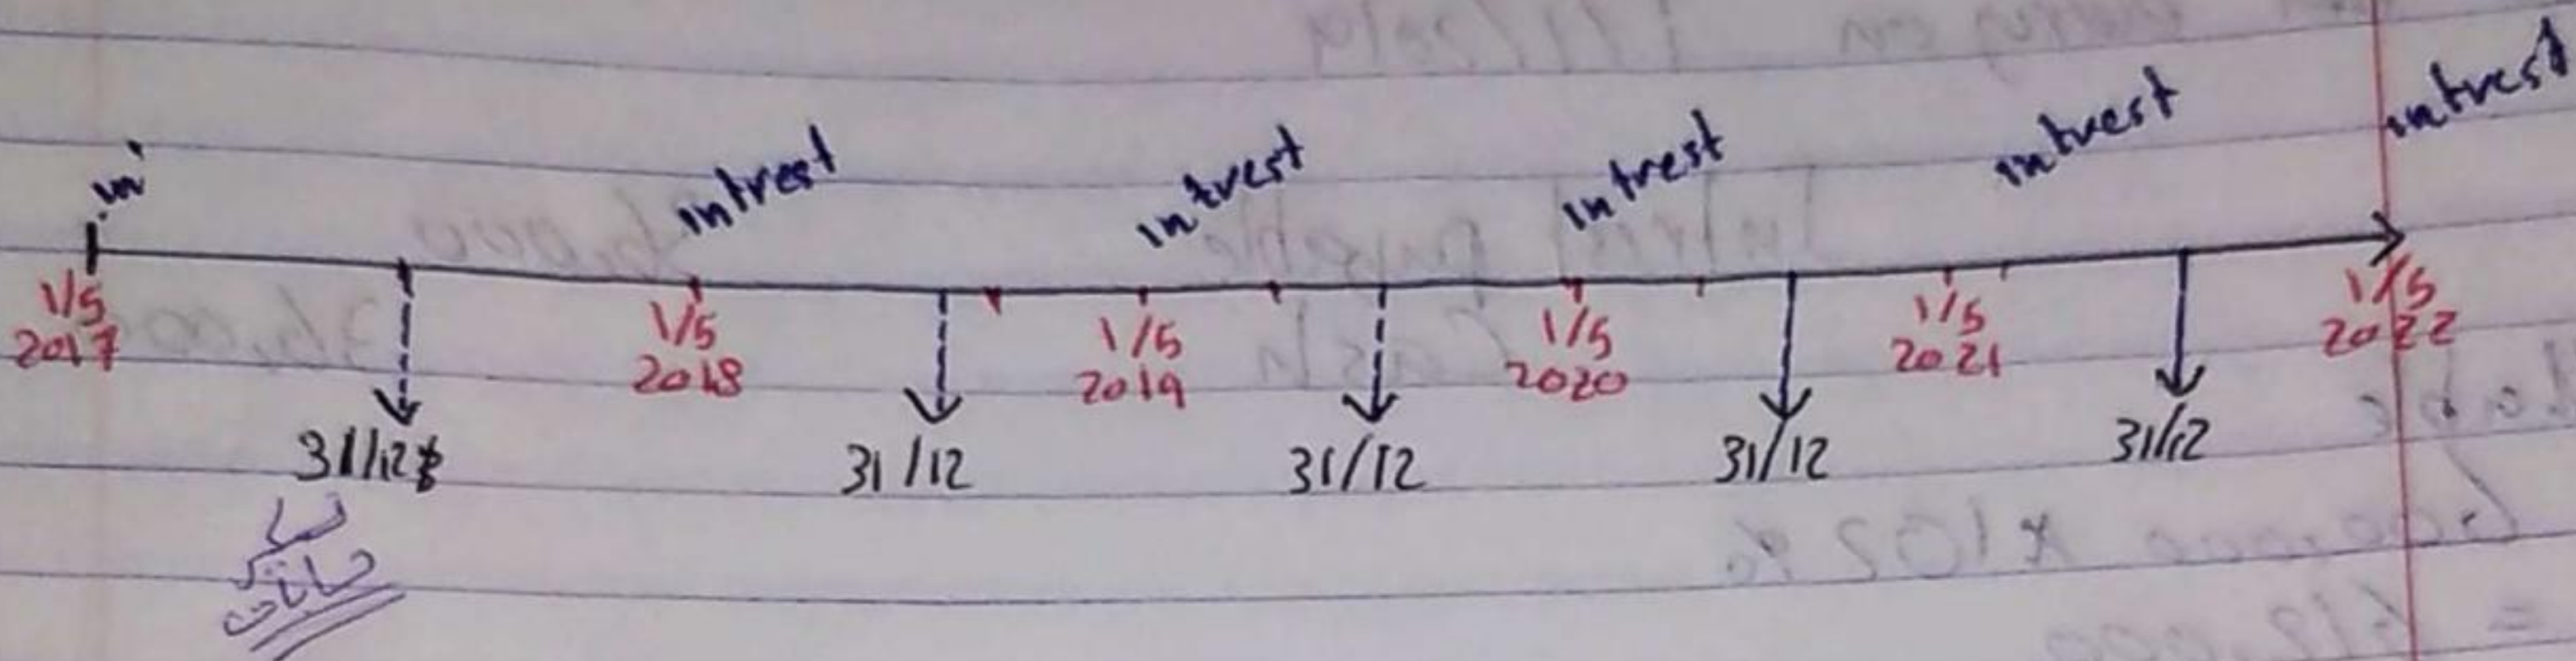 in
intrest
intrest
intrest
intrest
intrest
1/5
2017
1/5
2018
1/5
2019
1/5
2020
1/5
2021
1/5
2022
31/12
31/12
31/12
31/12
31/12